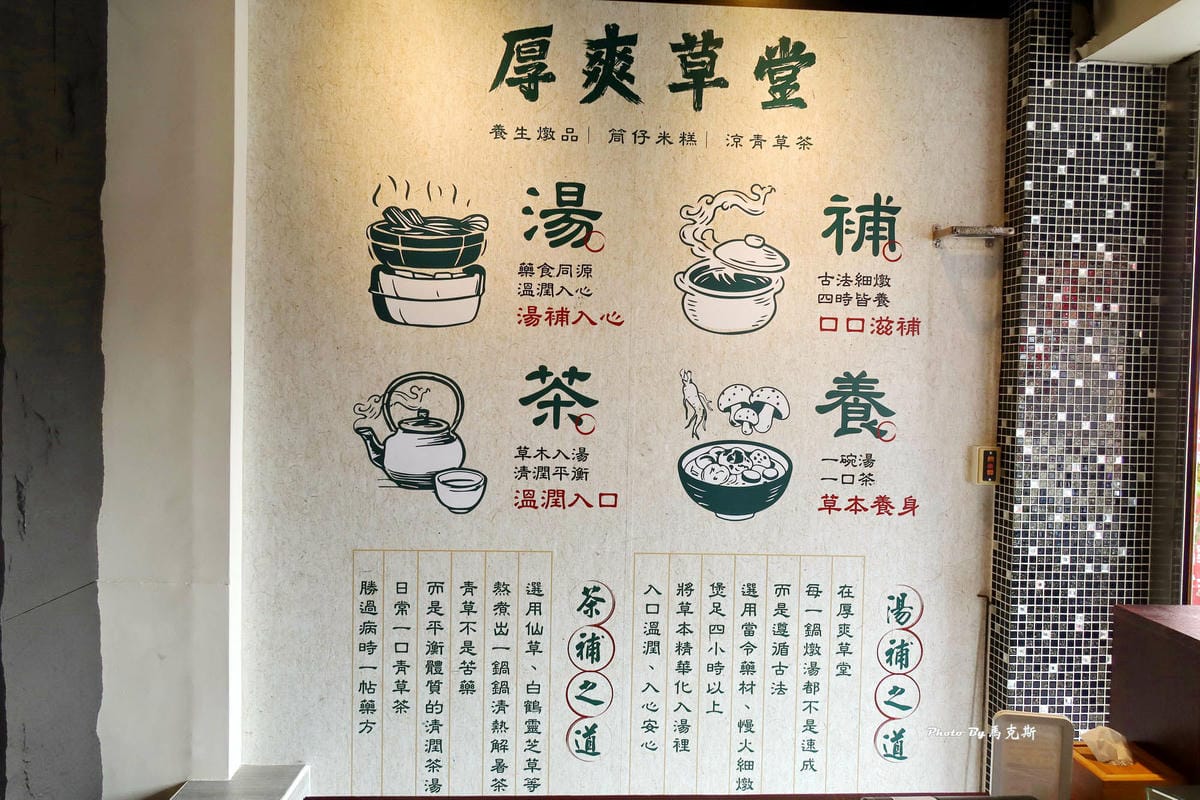 厚爽草堂
養生燉品｜筒仔米糕｜涼青草茶
湯
藥食同源
溫潤入心
湯補入心
補
古法細燉
四時皆養
口口滋補
茶
草木入湯
清潤平衡
溫潤入口
養
一碗湯
一口茶
草本養身
湯補之道
在厚爽草堂
每一鍋燉湯都不是速成
而是遵循古法
選用當令藥材、慢火細燉
煲足四小時以上
將草本精華化入湯裡
入口溫潤、入心安心
茶補之道
選用仙草、白鶴靈芝草等
熬煮出一鍋鍋清熱解暑茶
青草不是苦藥
而是平衡體質的清潤茶湯
日常一口青草茶
勝過病時一帖藥方
Photo By 馬克斯